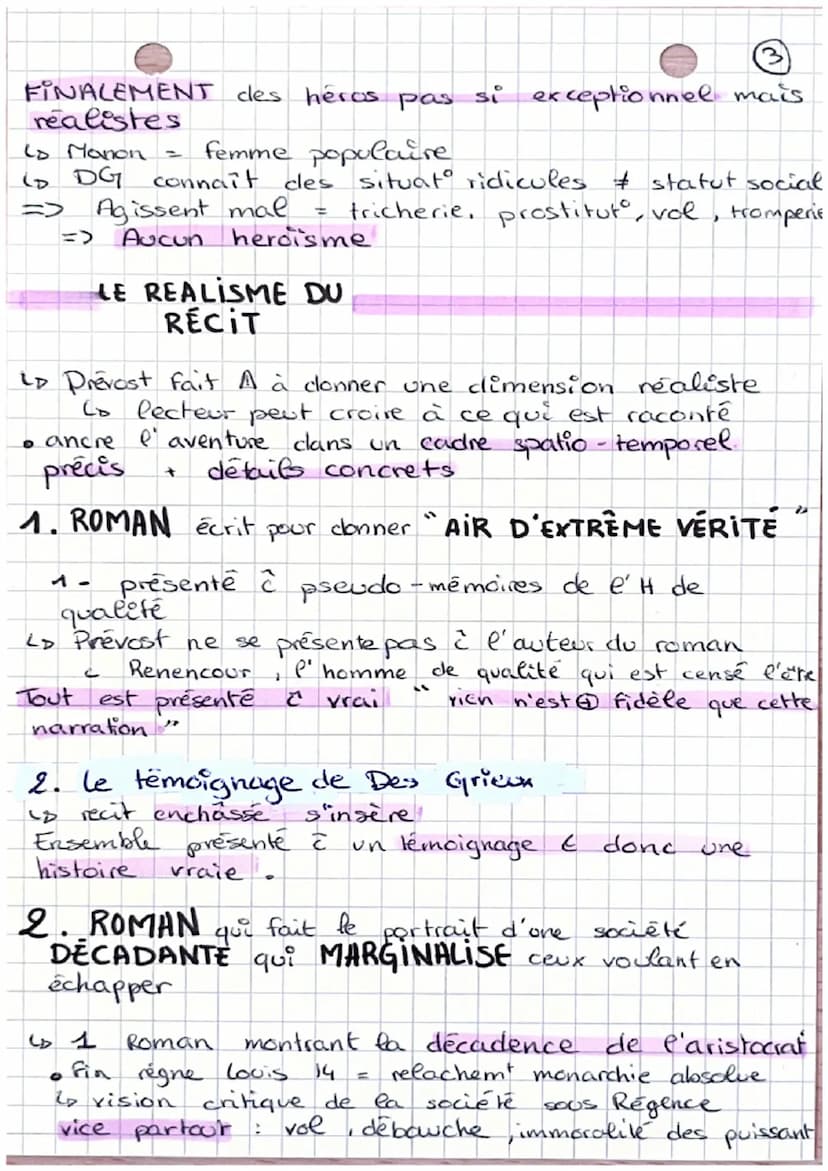 3
FINALEMENT des héros pas si exceptionnel mais
réalistes
↳ Manon = femme populaire
↳ DG connaît des situat° ridicules ≠ statut social
=> Agissent mal = tricherie, prostitut°, vol, tromperie
=> Aucun heroïsme
LE REALISME DU
RÉCIT
↳ Prévost fait A à donner une dimension réaliste
↳ lecteur peut croire à ce qui est raconté
• ancre l'aventure dans un cadre spatio-temporel
précis + détails concrets
1. ROMAN écrit pour donner "AIR D'EXTRÊME VÉRITÉ"
1- présenté c̄ pseudo-mémoires de l'H de
qualité
↳ Prévost ne se présente pas c̄ l'auteur du roman
c Renencour, l'homme de qualité qui est censé l'être
Tout est présenté c̄ vrai "rien n'est ⊕ fidèle que cette
narration"
2. Le témoignage de Des Grieux
↳ récit enchâssé s'insère
Ensemble présenté c̄ un témoignage & donc une
histoire vraie.
2. ROMAN qui fait le portrait d'une société
DÉCADANTE qui MARGINALISE ceux voulant en
échapper
↳ 1 Roman montrant la décadence de l'aristocrat
• Fin règne Louis 14 = relachemt monarchie absolue
↳ vision critique de la société sous Régence
vice partout : vol, débauche, immoralité des puissant